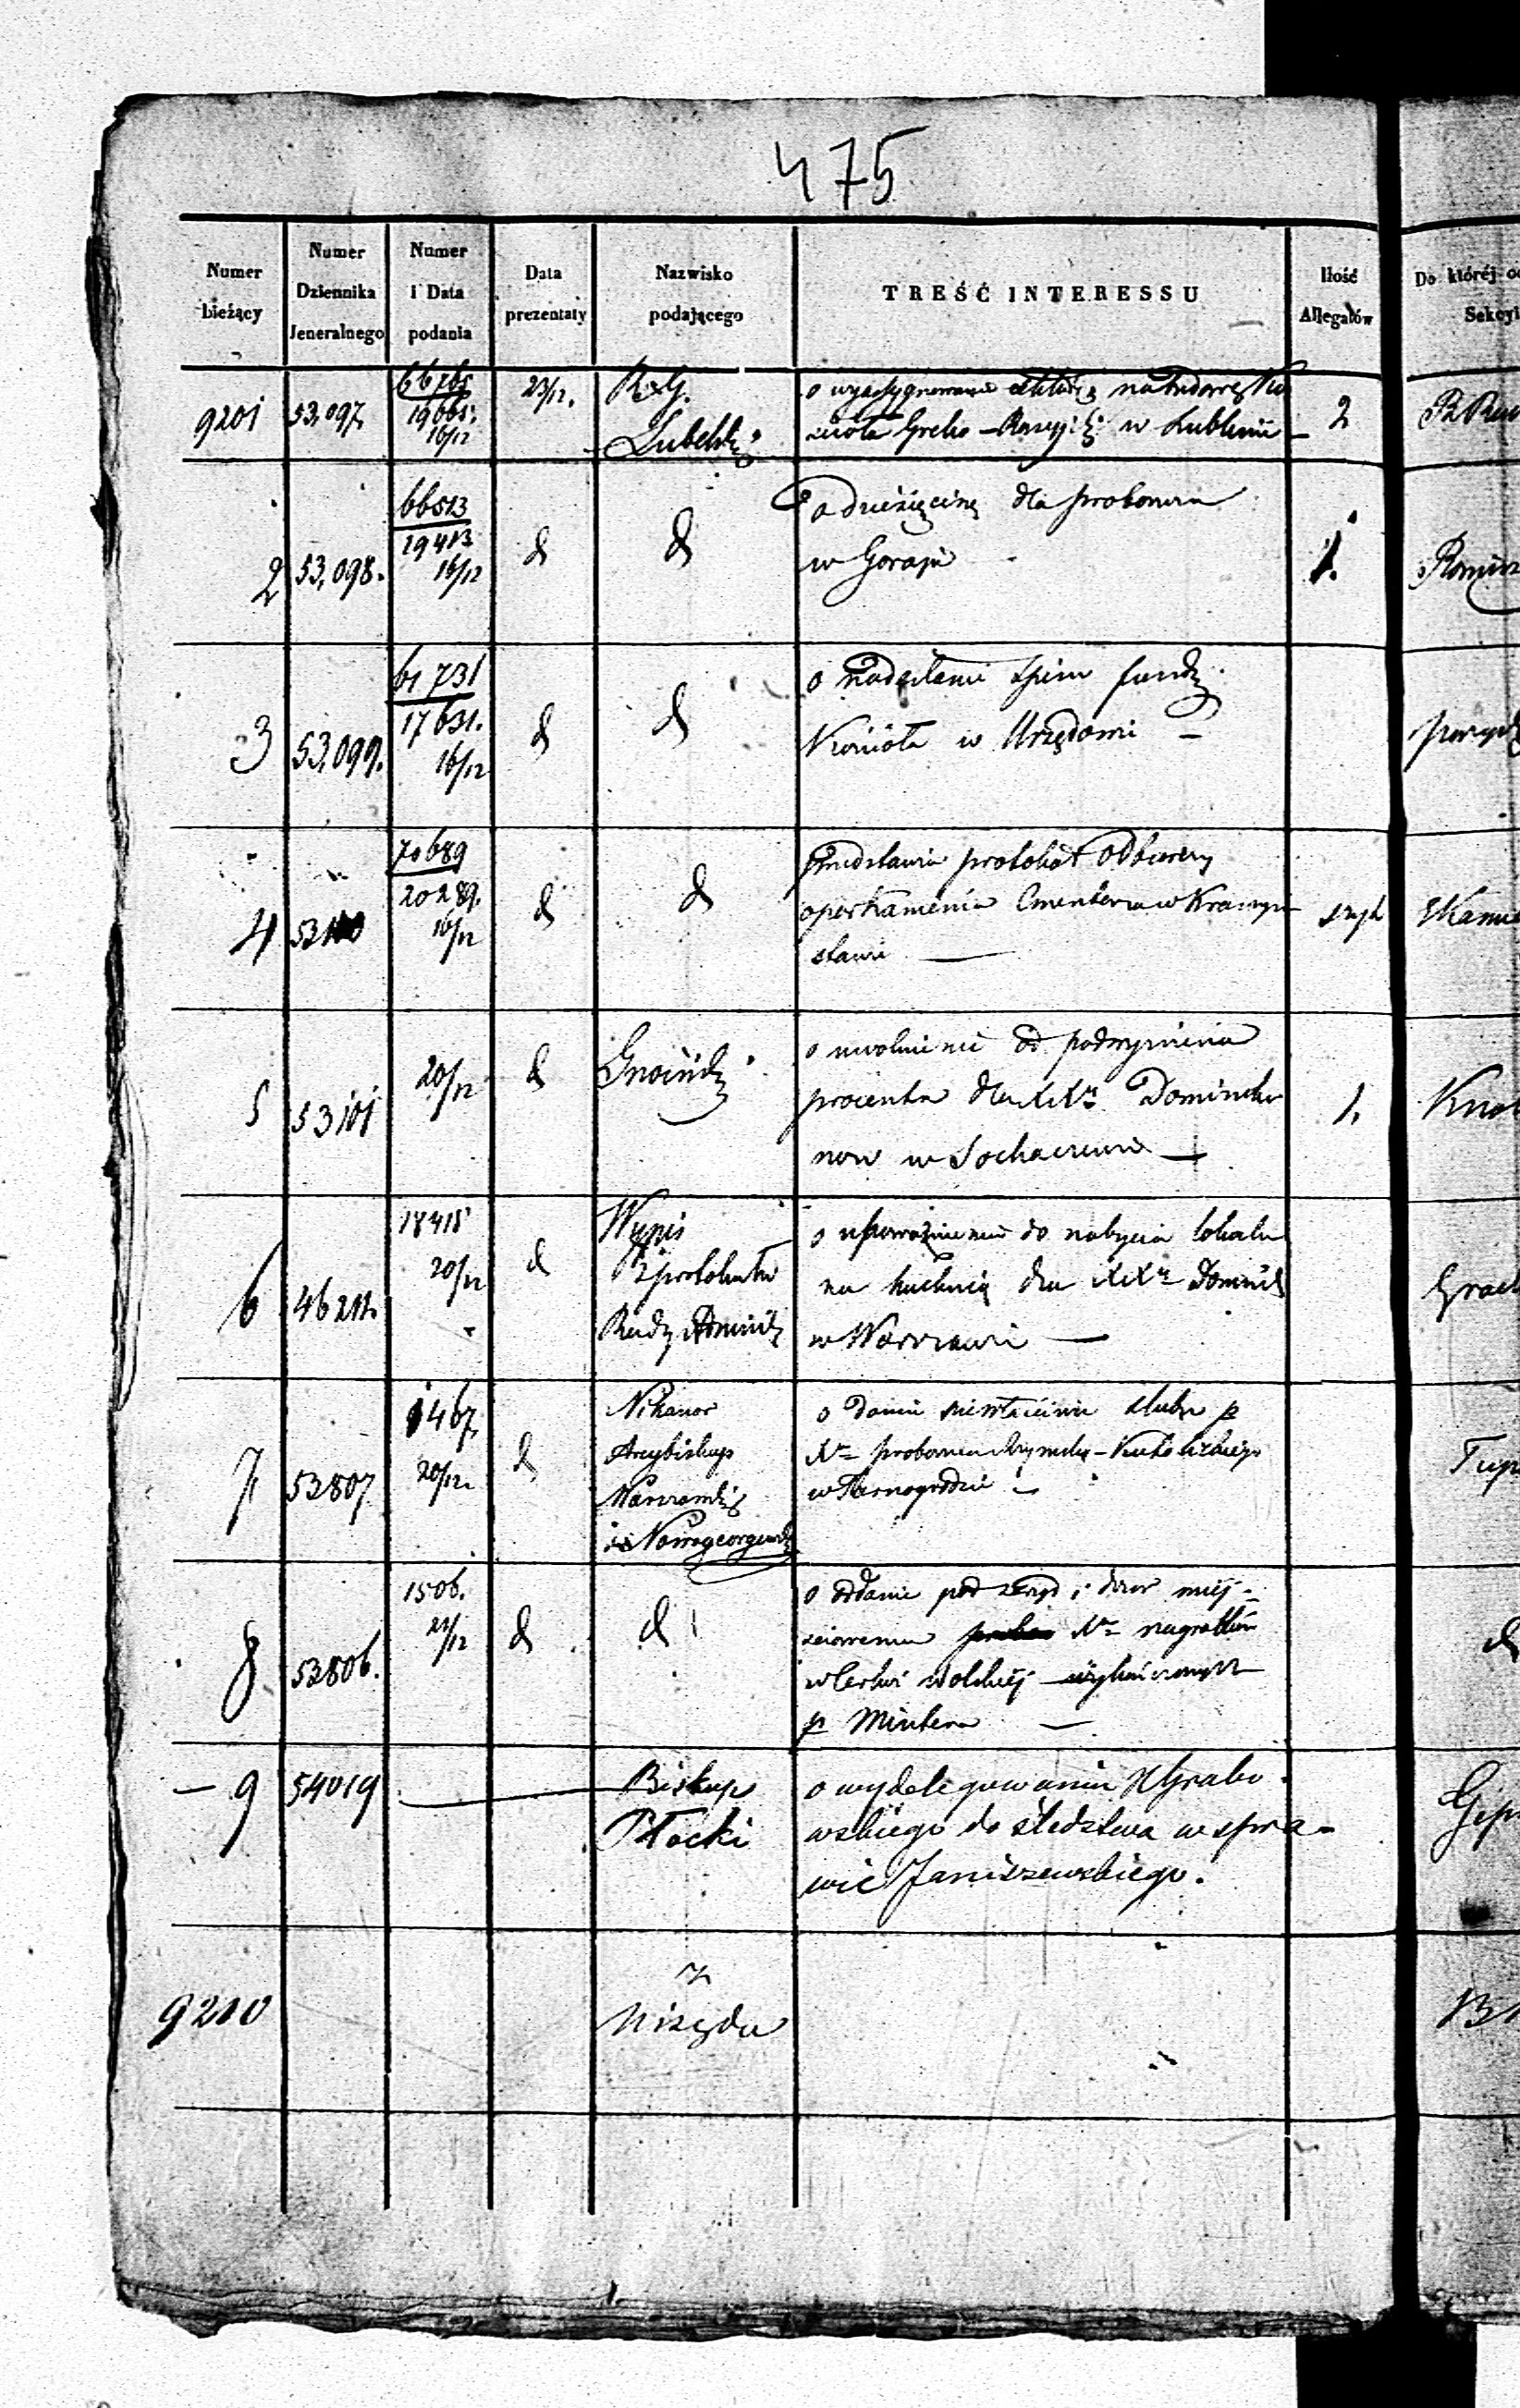 475
Numer bieżący
Numer Dziennika Jeneralnego
Numer i Data podania
Data prezentaty
Nazwisko podającego
TREŚĆ INTERESSU
Ilość Allegatów
Do któréj
Sekcyi
9201 53,097 19665. 16/12 23/12. R.G. Lubelski
o wyasygnowanie na budowę Ko
ścioła Greko-Rossyjski w Lublinie 2
2 53,098. 66513 19413 16/12 d d
o dziesięcinę dla proboszcza
w Goraju 1.
3 53,099. 61731 17631. 16/12 d d
o nadesłanie spisu fundi
Kościoła w Urzędowie
4 53100 70689 20289. 16/12 d d
przedstawia protokół odbiorczy
oparkanienia Cmentarza w Krasnym
stawie
5 53101 20/12 d Gnoiński
o uwolnienie od podwyższenia
procentu dla XXy Dominika
now w Sochaczewie 1.
6 46212. 18415 20/12 d
Wypis
z protokułu
Rady Adminis
o upoważnienie do nabycia lokalu
na kuchnią dla XXy Dominik
w Warszawie
7 53807 1467 20/12 d
Nikanor
Arcybiskup
Warszawski
i Nowogeorgiewski
o danie niewłaściwie ślubu p
Xa proboszcza Rzymsko-Katolickiego
w Tarnogrodzie
8 53806. 1506. 21/12 d d
o oddanie pod zarząd i dozór miej-
scowemu Xa nagrobków
w Cerkwi wolskiej wykończonych
p Mintera
9 54019 Biskup
Płocki
o wydelegowanie X Grabo-
wskiego do śledztwa w spra-
wie Janiszewskiego.
9210 z
Urzędu